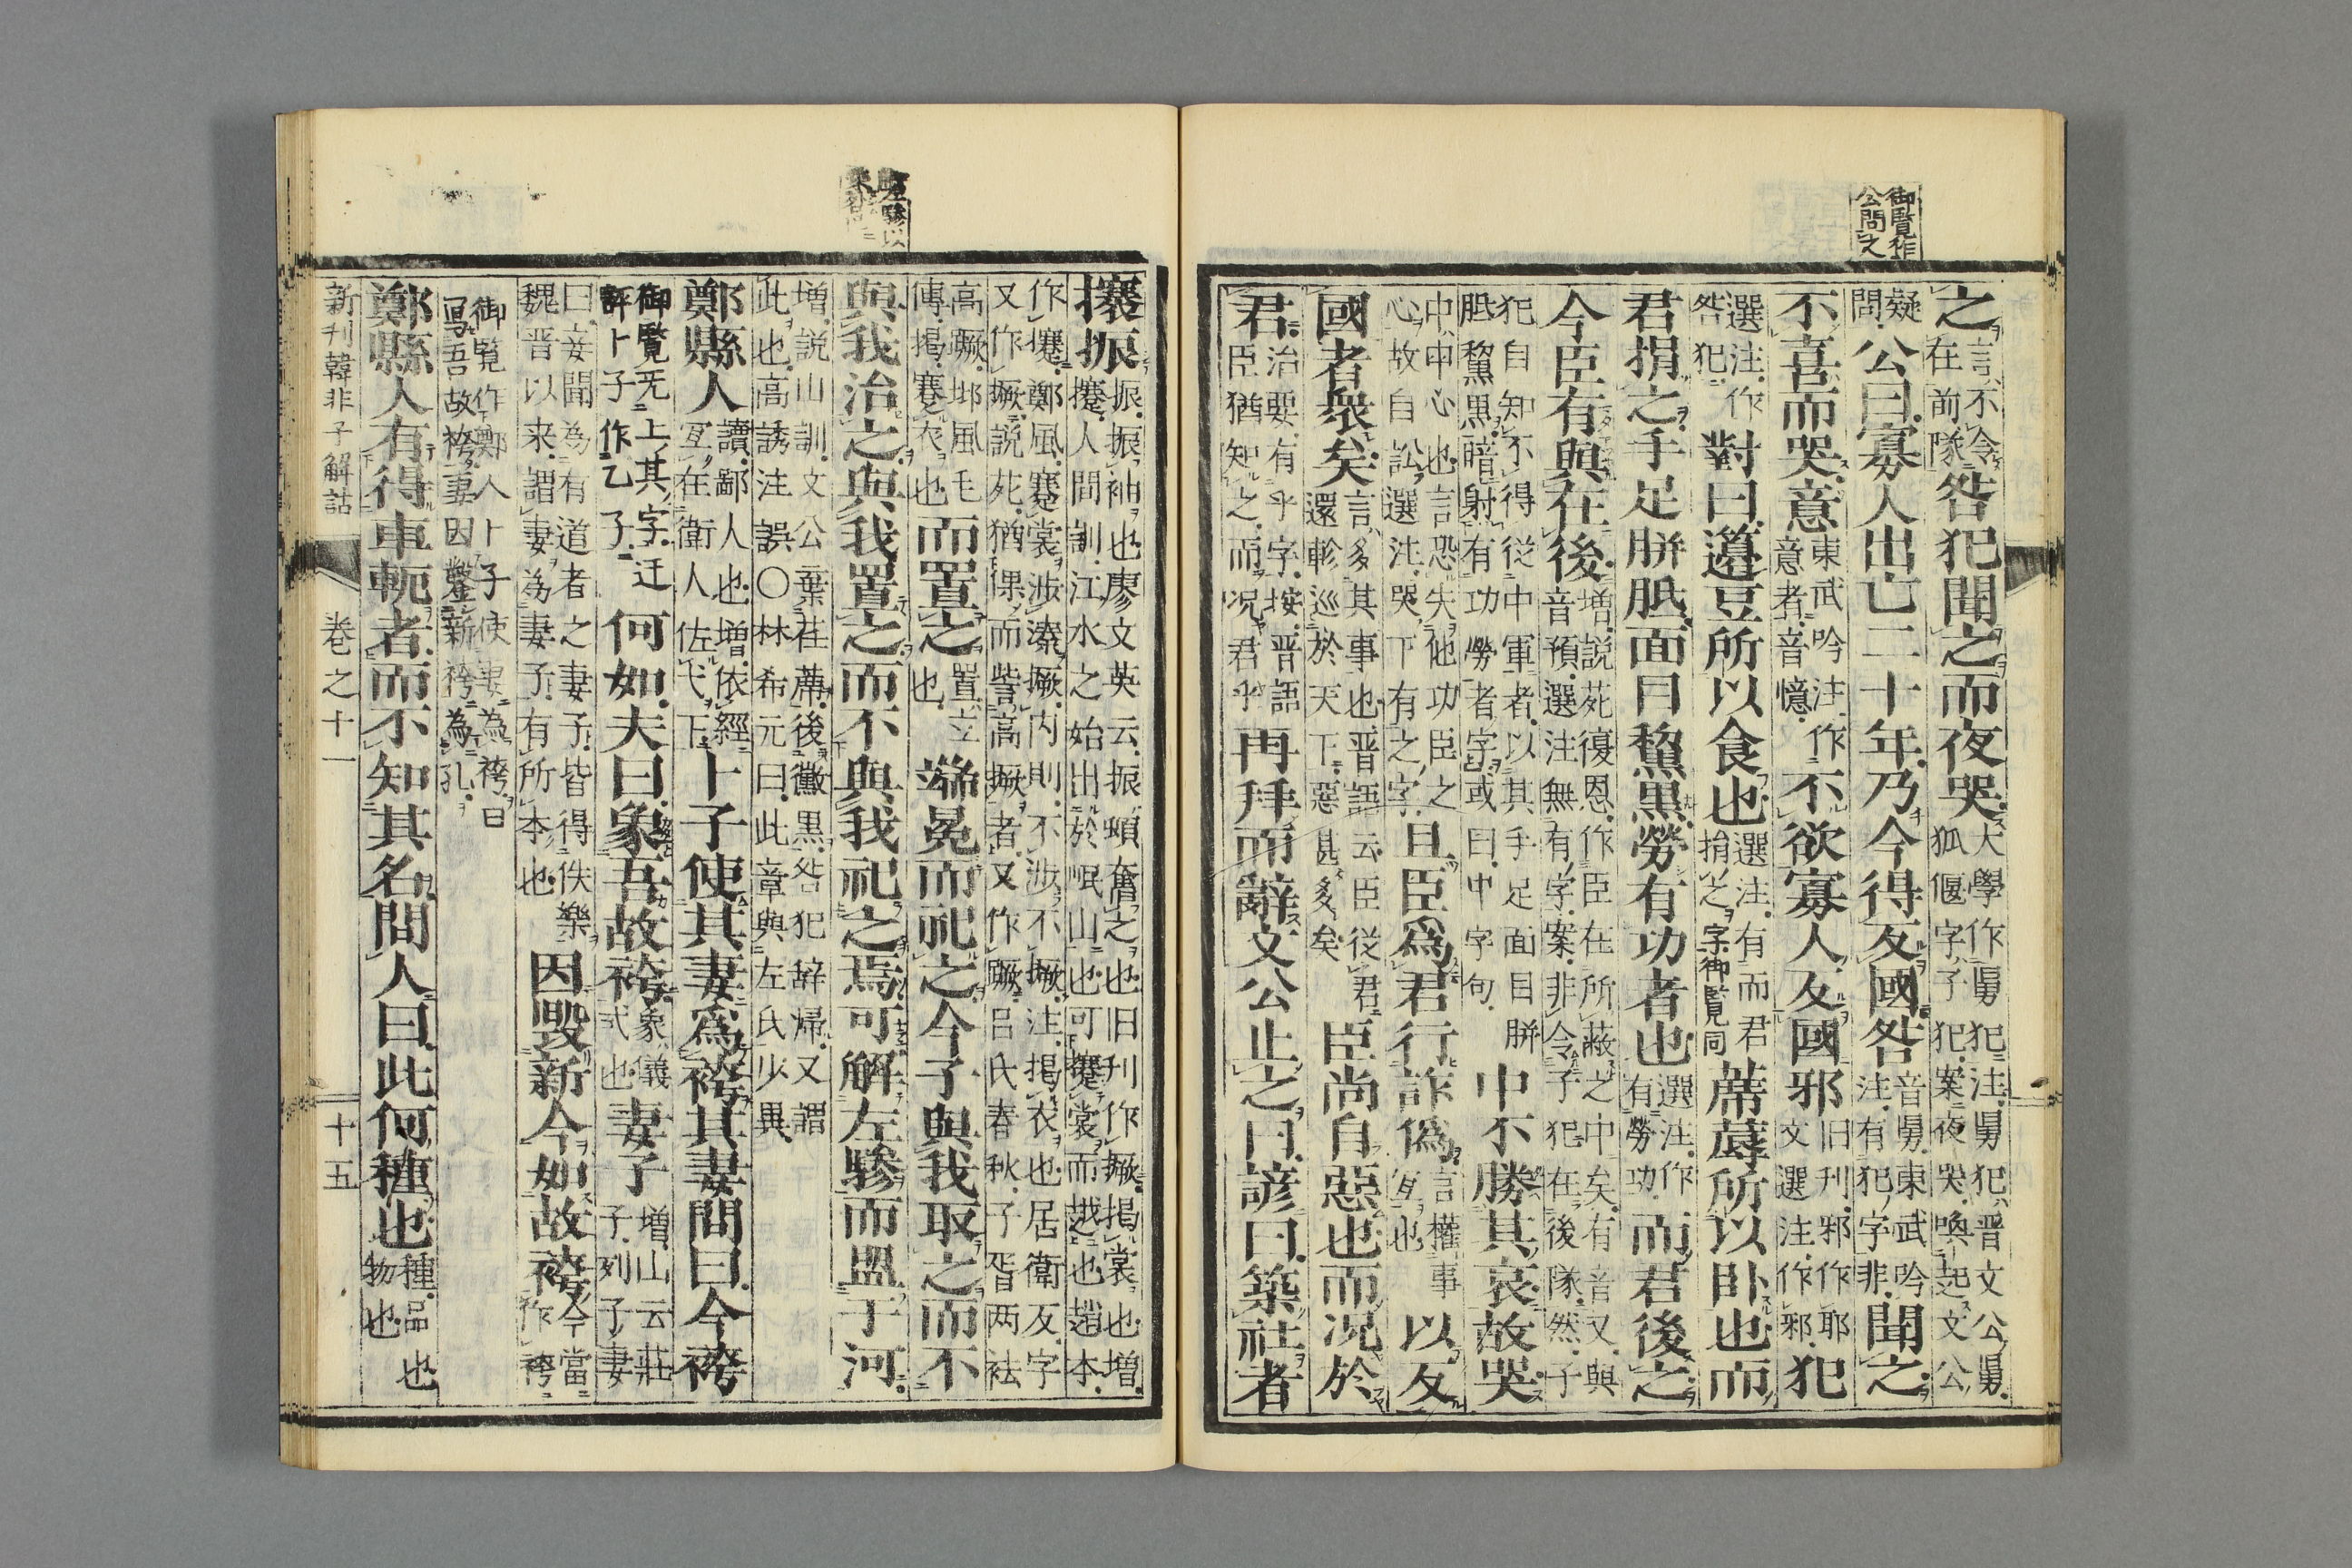 御覽作
公問之
之言不令在前隊咎犯聞之而夜哭犬學作舅犯注舅犯晉文公舅狐偃字子犯案夜哭喚起文公
疑問公曰寡人出亡二十年乃今得反國咎音舅東武吟注有犯字非聞之
不喜而哭意東武吟注作意者音憶不欲寡人反國邪旧刊邪作耶文選注作邪犯
選注作咎犯對曰籩豆所以食也選注有而君捐之字御覽同蓆蓐所以卧也而
君捐之手足胼胝面目黧黑勞有功者也選注作有勞功而君後之
今臣有與在後増説苑復恩作臣在所蔽之中矣有音又與音預選注無有字案非令子犯在後隊然子
犯自知不得從中軍者以其手足面目胼胝黧黑暗射有功勞者字或曰中字句中不勝其哀故哭
中中心也言恐失他功臣之心故自訟選注哭下有之字且臣爲君行詐僞言權事宐也以反
國者衆矣言多其事也晉語云臣從君還軫巡於天下惡甚多矣臣尚自惡也而况於
君治要有乎字按晉語臣猶知之而况君乎再拜而辭文公止之曰諺曰築社者
攐撅振振袖也廖文英云振頓奮之也旧刊作撅揭裳也増攓人間訓江水之始出於岷山也可攓裳而越也趙本
作攓鄭風褰裳涉溱撅内則不涉不撅注揭衣也居衛反字又作撅説苑猶倮而訾高撅者又作蹶呂氏春秋子胥两袪
高蹶邶風毛傳揭褰衣也而置之置立也端冕而祀之今子與我取之而不
與我治之與我置之而不與我祀之焉可解左驂而盟于河
増説山訓文公棄荏蓆後黴黒咎犯辞歸又謂此也高誘注誤〇林希元曰此章與左氏少異
鄭縣人讀鄙人也増依經宐在衛人佐弋下卜子使其妻爲袴其妻問曰今袴
御覽无上其字迂評卜子作乙子何如夫曰象吾故袴象儀弍也妻子増山云莊子列子妻
曰妾聞為有道者之妻子皆得佚樂魏晋以来謂妻為妻子有所本也因毀新令如故袴今當作袴
御覧作鄭人卜子使妻為袴曰冩吾故袴妻因鑿新袴為孔
鄭縣人有得車軛者而不知其名問人曰此何種也種品也物也
新刊韓非子解詁　卷之十一　十五